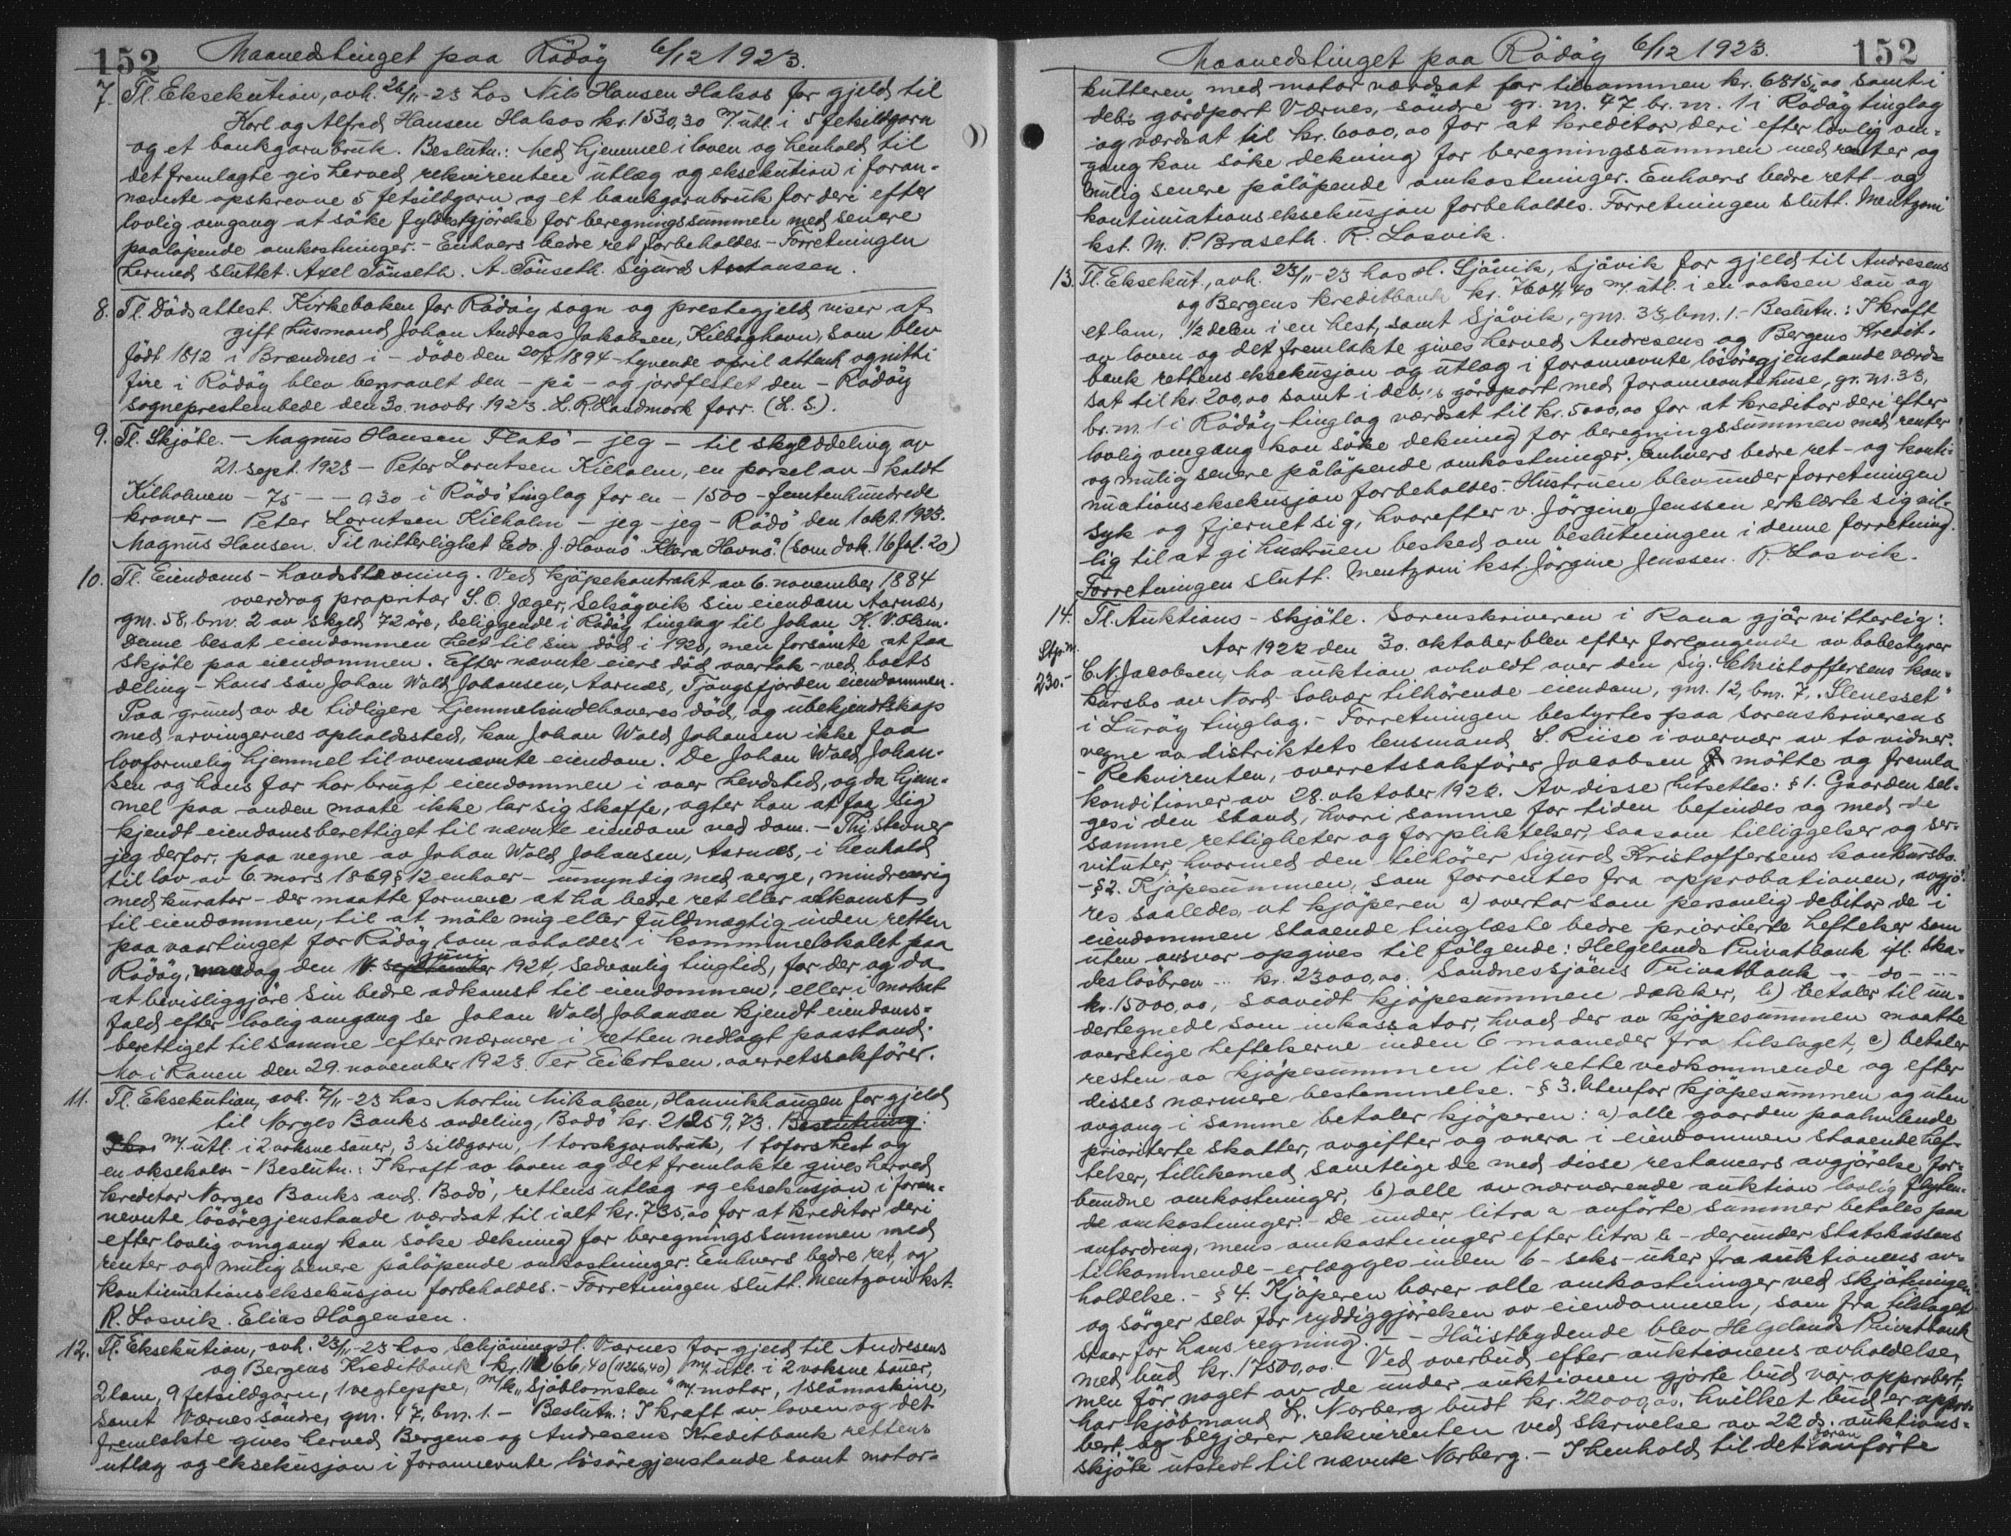 152 Maanedstinget paa Rödöy 6/12 1923.
7. Tl. Eksekution, avh. 26/11-23 hos Nils Hansen Halsos for gjeld til
Karl og Alfred Hansen Halsos kr. 1530,30 m/ utl. i 5 fetsildgarn
og et bankgarnbruk. Beslutn.: Med hjemmel i loven og henhold til
det fremlagte gis herved rekvirenten utlæg og eksekution i foran-
nævnte opskrevne 5 fetsildgarn og et bankgarnbruk for deri efter
lovlig omgang at söke fyldestgjörelse for beregningssummen med senere
paalöpende omkostninger. - Enhvers bedre ret forbeholdes - Forretningen
hermed sluttet. Axel Tönseth. A. Tönseth. Sigurd Antonsen.
8. Tl. Dödsattest. Kirkeboken for Rödöy sogn og prestegjeld viser at
gift husmand Johan Andreas Jakobsen, Kilboghavn, som blev
födt 1812 i Brændnes i - döde den 20/4 1894 - tyvende april attenh. ognitti
fire i Rödöy blev begravet den - på - og jordfestet den - Rödöy
sogneprestembede den 30. novbr. 1923. L. R. Landmark forr. (L. S.).
9. Tl. Skjöte. - Magnus Hansen Flatö - jeg - til skylddeling av
21. sept. 1923 - Peter Lorntsen Kilholm, en parsel av - kaldt
Kilholmen - 75 - - 0,30 i Rödö tinglag for en - 1500 - femtenhundrede
kroner - Peter Lorntsen Kilholm - jeg - jeg - Rödö den 1 okt. 1923.
Magnus Hansen. Til vitterlighet Edv. J. Havnö Klara Havnö. (som dok. 16 fol. 20)
10. Tl. Eiendoms - havdstevning. Ved kjöpekontrakt av 6. november 1884
overdrog proprietær S. O. Jæger, Selsögvik sin eiendom Aarnæs,
gnr. 58, bnr. 2 av skyld 72 öre, beliggende i Rödöy tinglag til Johan K. V. Olsen.
Denne besat eiendommen helt til sin död i 1920, men forsömte at faa
skjöte paa eiendommen. Efter nævnte eiers död overtok - ved boets
deling - hans sön Johan Wold Johansen, Aarnæs, Tjongsfjorden eiendommen.
Paa grund av de tidligere hjemmelsindehaveres död, og ubekjendtskap
med arvingernes opholdssted, kan Johan Wold Johansen ikke faa
lovformelig hjemmel til ovennævnte eiendom. Da Johan Wold Johan-
sen og hans far har brugt eiendommen i over hevdstid, og da hjem-
mel paa anden maate ikke lar sig skaffe, agter han at faa sig
kjendt eiendomsberettiget til nævnte eiendom ved dom. - Thi stevner
jeg derfor, paa vegne av Johan Wold Johansen, Aarnæs, i henhold
til lov av 6. mars 1869 § 12 enhver - umyndig med verge, mindreaarig
med kurator - der maatte formene at ha bedre ret eller adkomst
til eiendommen, til at möte mig eller fuldmægtig inden retten
paa vaartinget for Rödöy som avholdes i kommunelokalet paa
Rödöy, mandag den 11. juni 1924, sedvanlig tingtid, for der og da
at bevisliggjöre sin bedre adkomst til eiendommen, eller i motsat
fald efter lovlig omgang se Johan Wold Johansen kjendt eiendoms-
berettiget til samme efter nærmere i retten nedlagt paastand.
Mo i Ranen den 29. november 1923. Per Eilertsen. overretssakförer.
11. Tl. Eksekution, avh. 7/11-23 hos Martin Mikalsen, Haunkhaugen for gjeld
til Norges Banks avdeling, Bodö kr. 21259,73. Beslutning:
m/ utl. i 2 voksne sauer, 3 sildgarn, 1 torskgarnbruk, 1 hest og
en oksekalv - Beslutn.: I kraft av loven og det fremlakte gives herved
kreditor Norges Banks avd. Bodö, rettens utlæg og eksekusjon i foran-
nevnte lösöregjenstande værdsat til ialt kr. 735,00 for at kreditor deri
efter lovlig omgang kan söke dekning for beregningssummen med
renter og mulig senere pålöpende omkostninger. Enhvers bedre ret, og
kontinuationseksekusjon forbeholdes. - Forretningen slutt. Mentzoni kst.
R. Losvik. Elias Hågensen.
12. Tl. Eksekution, avh. 23/11-23 hos Schjöning H. Værnes for gjeld til Andresens
og Bergens Kreditbank kr. 11266,40 (11266,40) m/ utl. i 2 voksne sauer,
2 lam, 9 fetsildgarn, 1 vegteppe, m/k. "Sjöblomsten" m/ motor, 1 slåmaskine,
samt Værnes söndre, gnr. 47, bnr. 1. - Beslutn.: I kraft av loven og det
fremlakte gives herved Bergens og Andresens Kreditbank rettens
utlæg og eksekusjon i forannevnte lösöregjenstande samt motor-
Maanedstinget paa Rödöy 6/12 1923. 152
kutteren med motor værdsat for tilsammen kr. 6815,00 samt i
deb's gårdpart Værnes, söndre gr. nr. 47 br. nr. 1 i Rödöy tinglag
og værdsat til kr. 6000,00 for at kreditor deri efter lovlig om-
gang kan söke dekning for beregningssummen med renter og
mulig senere pålöpende omkostninger. Enhvers bedre rett - og
kontinuationseksekusjon forbeholdes. Forretningen slutt. Mentzoni
kst. M. P. Braseth. R. Losvik.
13. Tl. Eksekut., avh. 23/11-23 hos H. Sjåvik, Sjåvik for gjeld til Andresens
og Bergens kreditbank kr. 7604,40 m/ utl. i en voksen sau og
et lam, 1/2 delen i en hest, samt Sjåvik, gnr. 33, bnr. 1. - Beslutn.: I kraft
av loven og det fremlakte gives herved Andresens og Bergens Kredit-
bank rettens eksekusjon og utlæg i forannevnte lösöregjenstande værd-
sat til kr. 200,00 samt i deb.s gårdpart med forannevnte huse, gr. nr. 33,
br. nr. 1 i Rödöy tinglag værdsat til kr. 5000,00 for at kreditor deri efter
lovlig omgang kan söke dekning for beregningssummen med renter
og mulig senere pålöpende omkostninger. Enhvers bedre ret - og konti-
nuationseksekusjon forbeholdes. - Hustruen blev under forretningen
syk og fjernet sig, hvorefter v. Jörgine Jenssen erklærte sig vil-
lig til at gi hustruen besked om beslutningen i denne forretning.
Forretningen slutt. Mentzoni kst. Jörgine Jenssen. R. Losvik.
14. Tl. Auktions - skjöte. Sorenskriveren i Rana gjör vitterlig:
Stp. m.
230.-
Aar 1922 den 30. oktober blev efter forlangende av bobestyrer
C. N. Jacobsen, Mo auktion avholdt over den Sig. Christoffersens kon-
kursbo av Nord-Solvær tilhörende eiendom, gnr. 12, bnr. 7, "Slenesset"
i Luröy tinglag. - Forretningen bestyrtes paa sorenskriverens
vegne av distriktets lensmand S. Riise i overvær av to vidner.
- Rekvirenten, overretssakförer Jacobsen mötte og fremla
konditioner av 28. oktober 1922. Av disse hitsettes: § 1. Gaarden sel-
ges i den stand, hvori samme for tiden befindes og med de
samme rettigheter og forpliktelser, saasom tilliggelser og ser-
vituter hvormed den tilhörer Sigurd Kristoffersens konkursbo.
- § 2. Kjöpesummen, som forrentes fra approbationen, avgjö-
res saaledes at kjöperen a) overtar som personlig debitor de i
eiendommen staaende tinglæste bedre prioriterte heftelser som
uten ansvar opgives til fölgende: Helgelands Privatbank ifl. ska-
deslösbrev ... kr. 23000,00. Sandnessjöens Privatbank - do - ...
kr. 15000,00, saavidt kjöpesummen dækker, b) betaler til un-
dertegnede som inkassator, hvad der av kjöpesummen maatte
overstige heftelserne inden 6 maaneder fra tilslaget, c) betaler
resten av kjöpesummen til rette vedkommende og efter
disses nærmere bestemmelse. - § 3. Utenfor kjöpesummen og uten
avgang i samme betaler kjöperen: a) alle gaarden paahvilende
prioriterte skatter, avgifter og onera i eiendommen staaende hef-
telser, tillikemed samtlige de med disse restancers avgjörelse for-
bundne omkostninger, b) alle av nærværende auktion lovlig flyten-
de omkostninger. - De under litra a anförte summer betales paa
anfordring, mens omkostninger efter litra b - derunder statskassens
tilkommende - erlægges inden 6 - seks - uker fra auktionens av-
holdelse. - § 4. Kjöperen bærer alle omkostninger ved skjötningen
og sörger selv for ryddiggjörelsen av eiendommen, som fra tilslaget
staar for hans regning. - - Höistbydende blev Helgelands Privatbank
med bud kr. 17500,00. - Ved overbud efter auktionens avholdelse,
men för noget av de under auktionen gjorte bud var approbert,
har kjöbmand Hr. Norberg budt kr. 22000,00, hvilket bud er appro-
bert og begjærer rekvirenten ved skrivelse av 22 ds. auktions-
skjöte utstedt til nævnte Norberg. - I henhold til det foran anförte